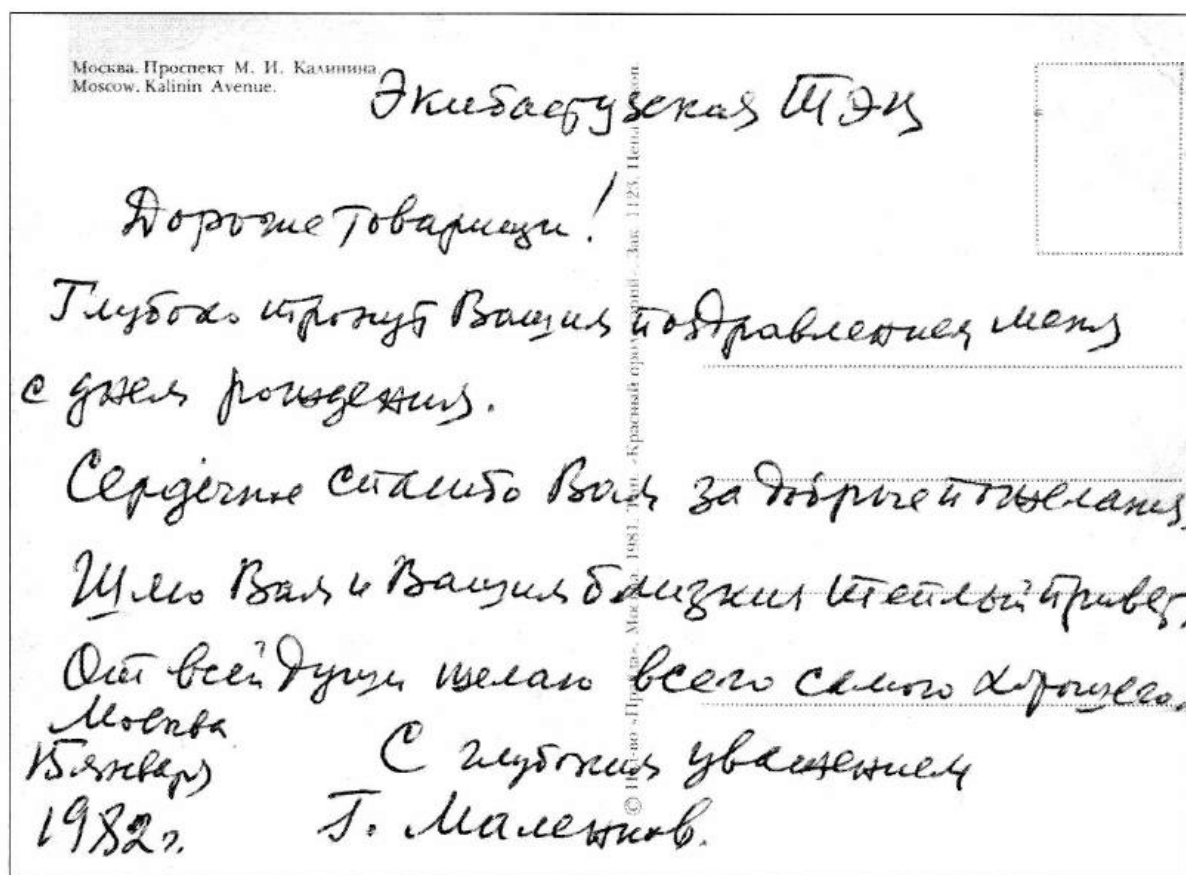 Москва. Проспект М. И. Калинина.
Moscow. Kalinin Avenue.
Экибастузская ТЭЦ
Дорогие товарищи!
Глубоко тронут Вашим поздравлением меня
с днем рождения.
Сердечное спасибо Вам за добрые пожелания.
Шлю Вам и Вашим близким теплый привет.
От всей души желаю всего самого хорошего.
Москва
15 января
1982 г.
С глубоким уважением
Г. Маленков.
© Изд-во «Правда». Москва. 1981. Тип. «Красный пролетарий». Зак. 1123. Цена